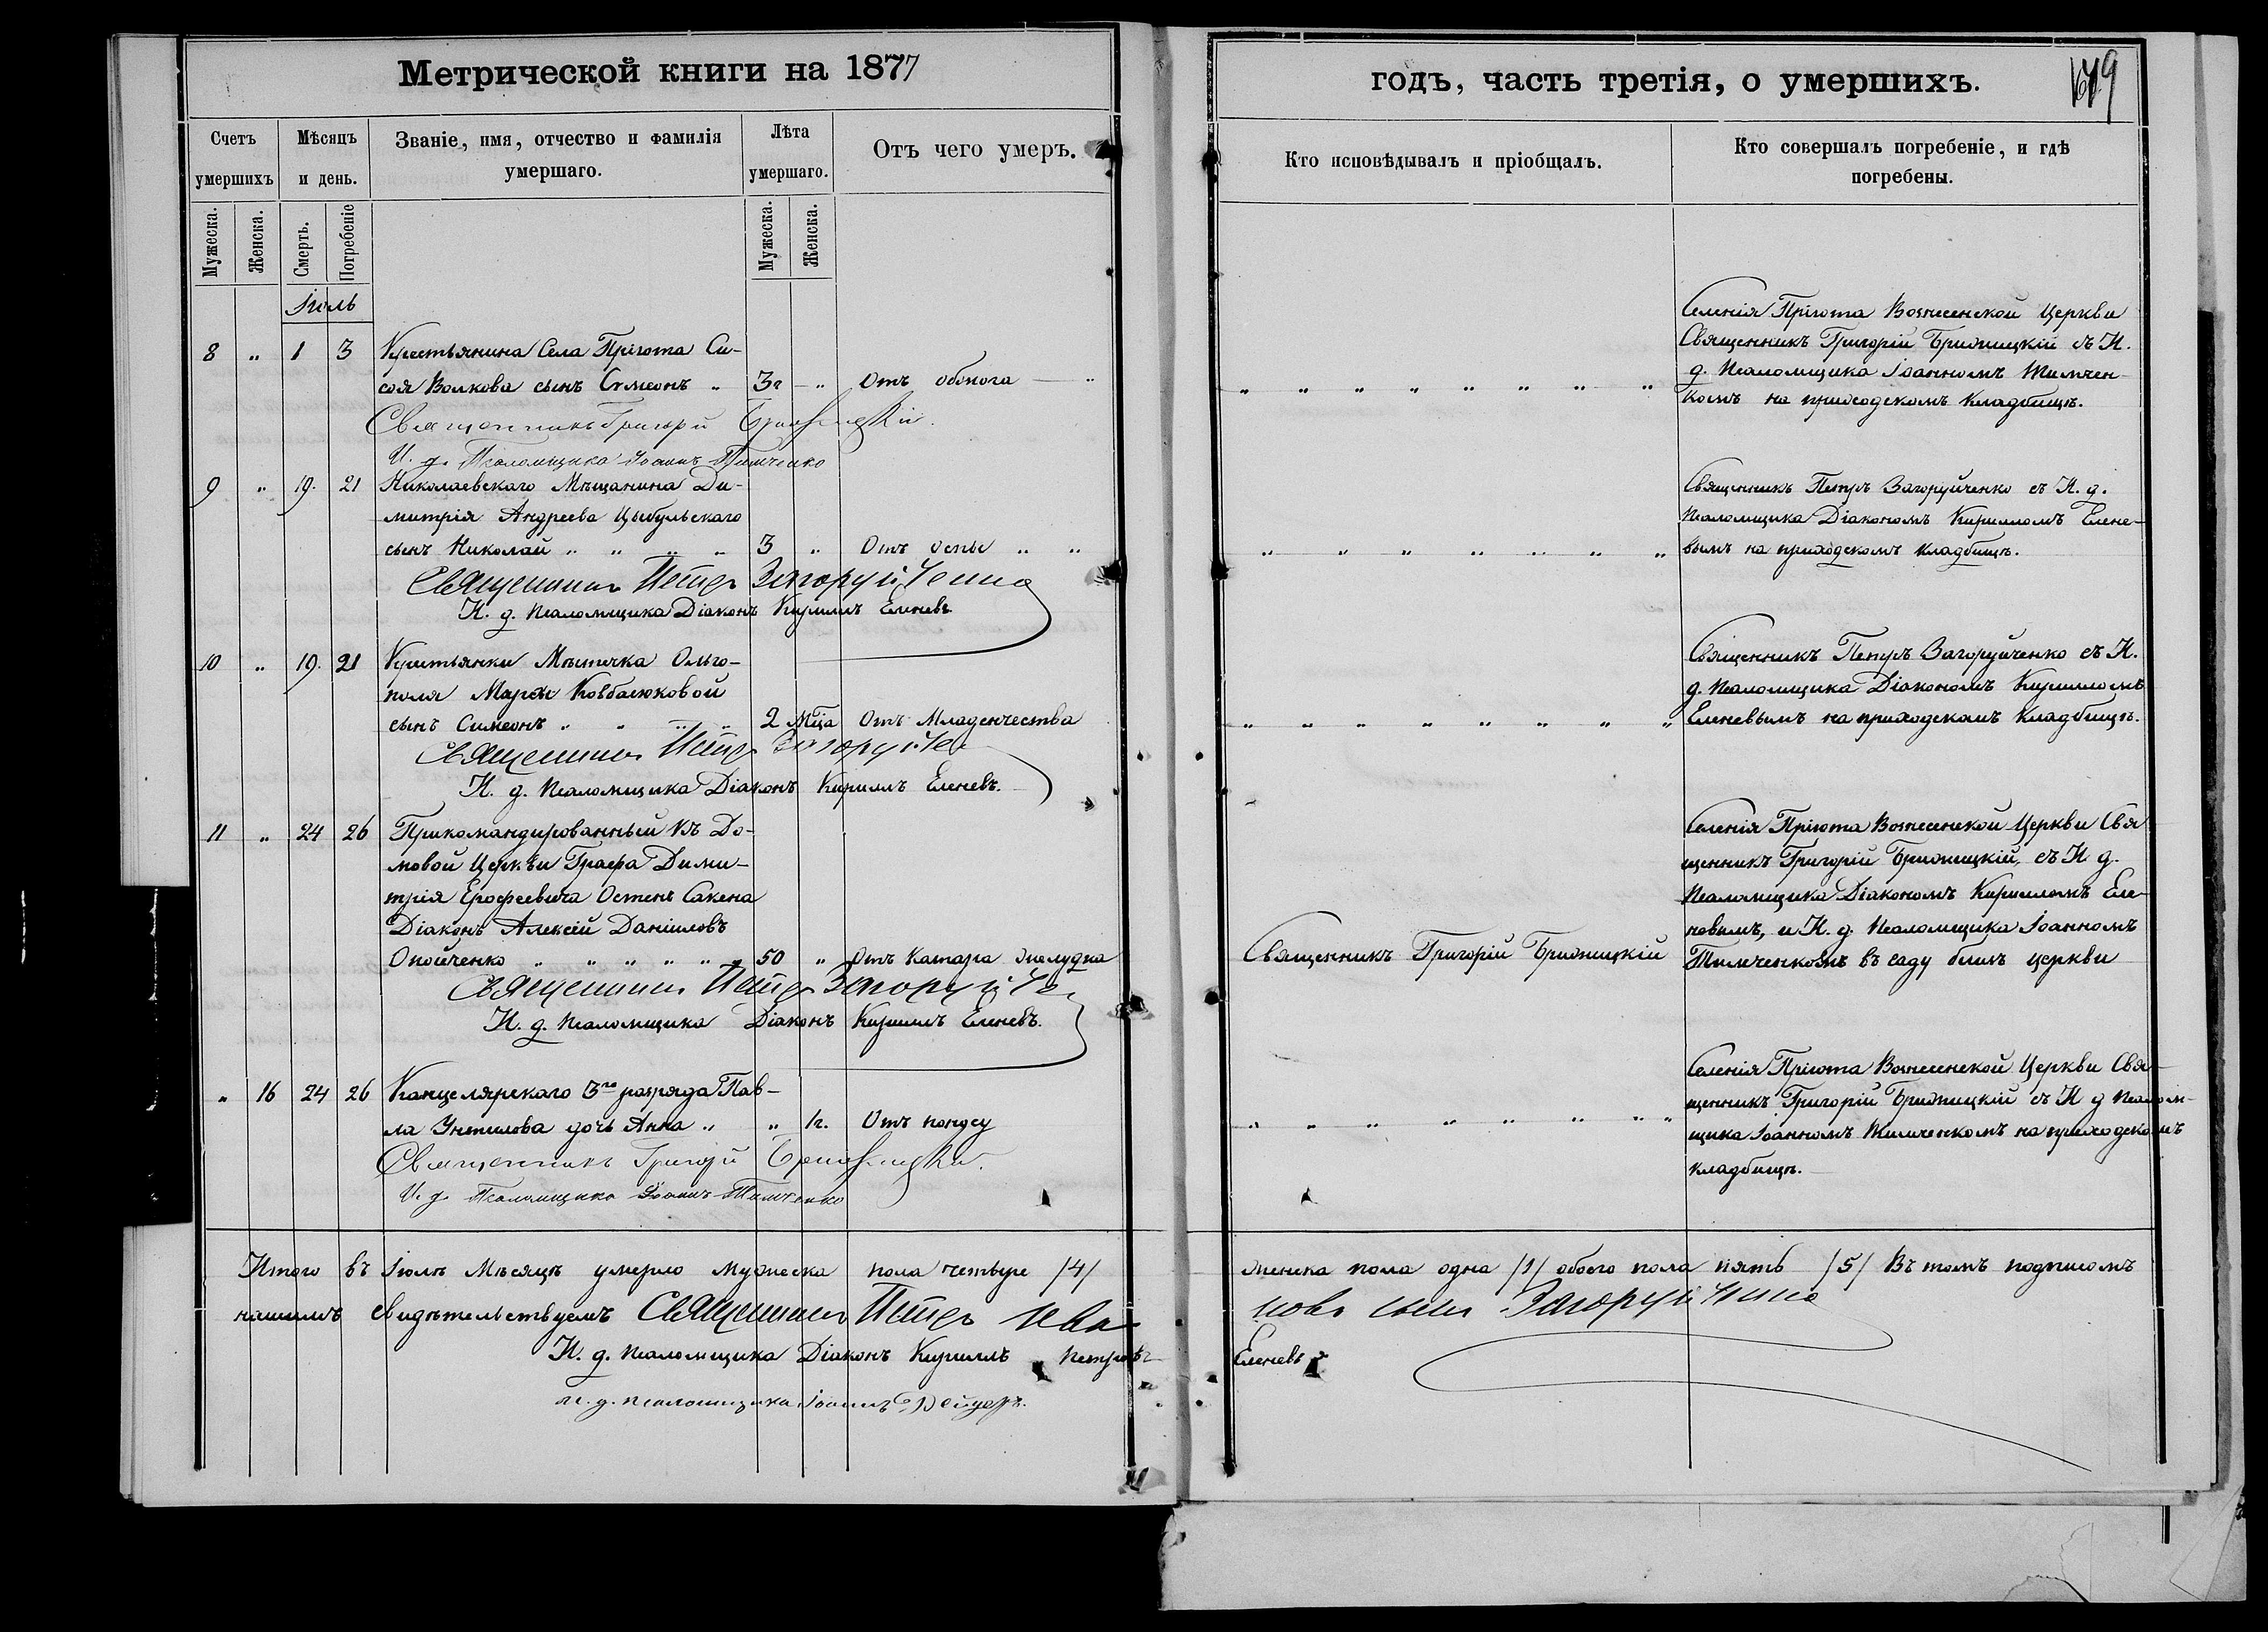 Метрической книги на 1877
годъ, часть третія, о умершихъ.
Счетъ умершихъ
Мѣсяцъ и день.
Званіе, имя, отчество и фамилія умершаго.
Лѣта умершаго.
Отъ чего умеръ.
Кто исповѣдывалъ и пріобщалъ.
Кто совершалъ погребеніе, и гдѣ погребены.
Мужеска.
Женска.
Смерть.
Погребеніе
Мужеска.
Женска.
Іюль
8 " 1 3 Крестьянина Села Пріюта Си-
соя Волкова сынъ Симеонъ " 3г " Отъ "
Священникъ Григорій Бриожицкій
И. д. Псаломщика Іоаннъ Тимченко
Селенія Пріюта Вознесенской Церкви
Священникъ Григорій Бриожицкій съ И.
д. Псаломщика Іоанномъ Тимчен
комъ на приходскомъ кладбищѣ.
9 " 19. 21 Николаевскаго Мѣщанина Ди-
митрія Андреева Цыбульскаго
сынъ Николай " " " " 3 " Отъ оспы " "
Священникъ Петръ Загоруйченко
И. д. Псаломщика Діаконъ Кириллъ Еленевъ
Священникъ Петръ Загоруйченко съ И. д.
Псаломщика Діакономъ Кирилломъ Елене-
вымъ на приходскомъ кладбищѣ.
10 " 19. 21 Крестьянки Мѣстечка Ольго-
поля Марѳи Ковбасюковой
сынъ Симеонъ " " " " 2 Мца Отъ Младенчества
Священникъ Петръ Загоруйче
И. д. Псаломщика Діаконъ Кириллъ Еленевъ.
Священникъ Петръ Загоруйченко съ И.
д. Псаломщика Діакономъ Кирилломъ
Еленевымъ на приходскомъ кладбищѣ.
11 " 24 26 Прикомандированный къ До-
мовой Церкви Графа Дими-
трія Ерофеевича Остенъ Сакена
Діаконъ Алексій Даніиловъ
Опойченко " " " " " " 50 " Отъ Катара желудка
Священникъ Петръ Загоруйче
И. д. Псаломщика Діаконъ Кириллъ Еленевъ.
Священникъ Григорій Бриожицкій
Селенія Пріюта Вознесенской Церкви Свя
щенникъ Григорій Бриожицкій, съ И д.
Псаломщика Діакономъ Кирилломъ Еле-
невымъ, и И. д. Псаломщика Іоанномъ
Тимченкомъ въ саду близъ церкви
" 16 24 26 Канцелярскаго 3го разряда Пав-
ла дочь Анна " " 1г. Отъ поносу
Священникъ Григорій Бриожицкій
И. д. Псаломщика Іоаннъ Тимченко
Селенія Пріюта Вознесенской Церкви Свя-
щенникъ Григорій Бриожицкій съ И д Псалом-
щика Іоанномъ Тимченкомъ на приходскомъ
кладбищѣ.
Итого въ Іюлѣ Мѣсяцѣ умерло мужеска пола четыре /4/ женска пола одна /1/ обоего пола пять /5/ Въ томъ подписомъ
нашимъ свидѣтельствуемъ Священникъ Петръ Ива новъ сынъ Загоруйченко
И. д. Псаломщика Діаконъ Кириллъ Петровъ Еленевъ
и. д. псаломщика Іоаннъ